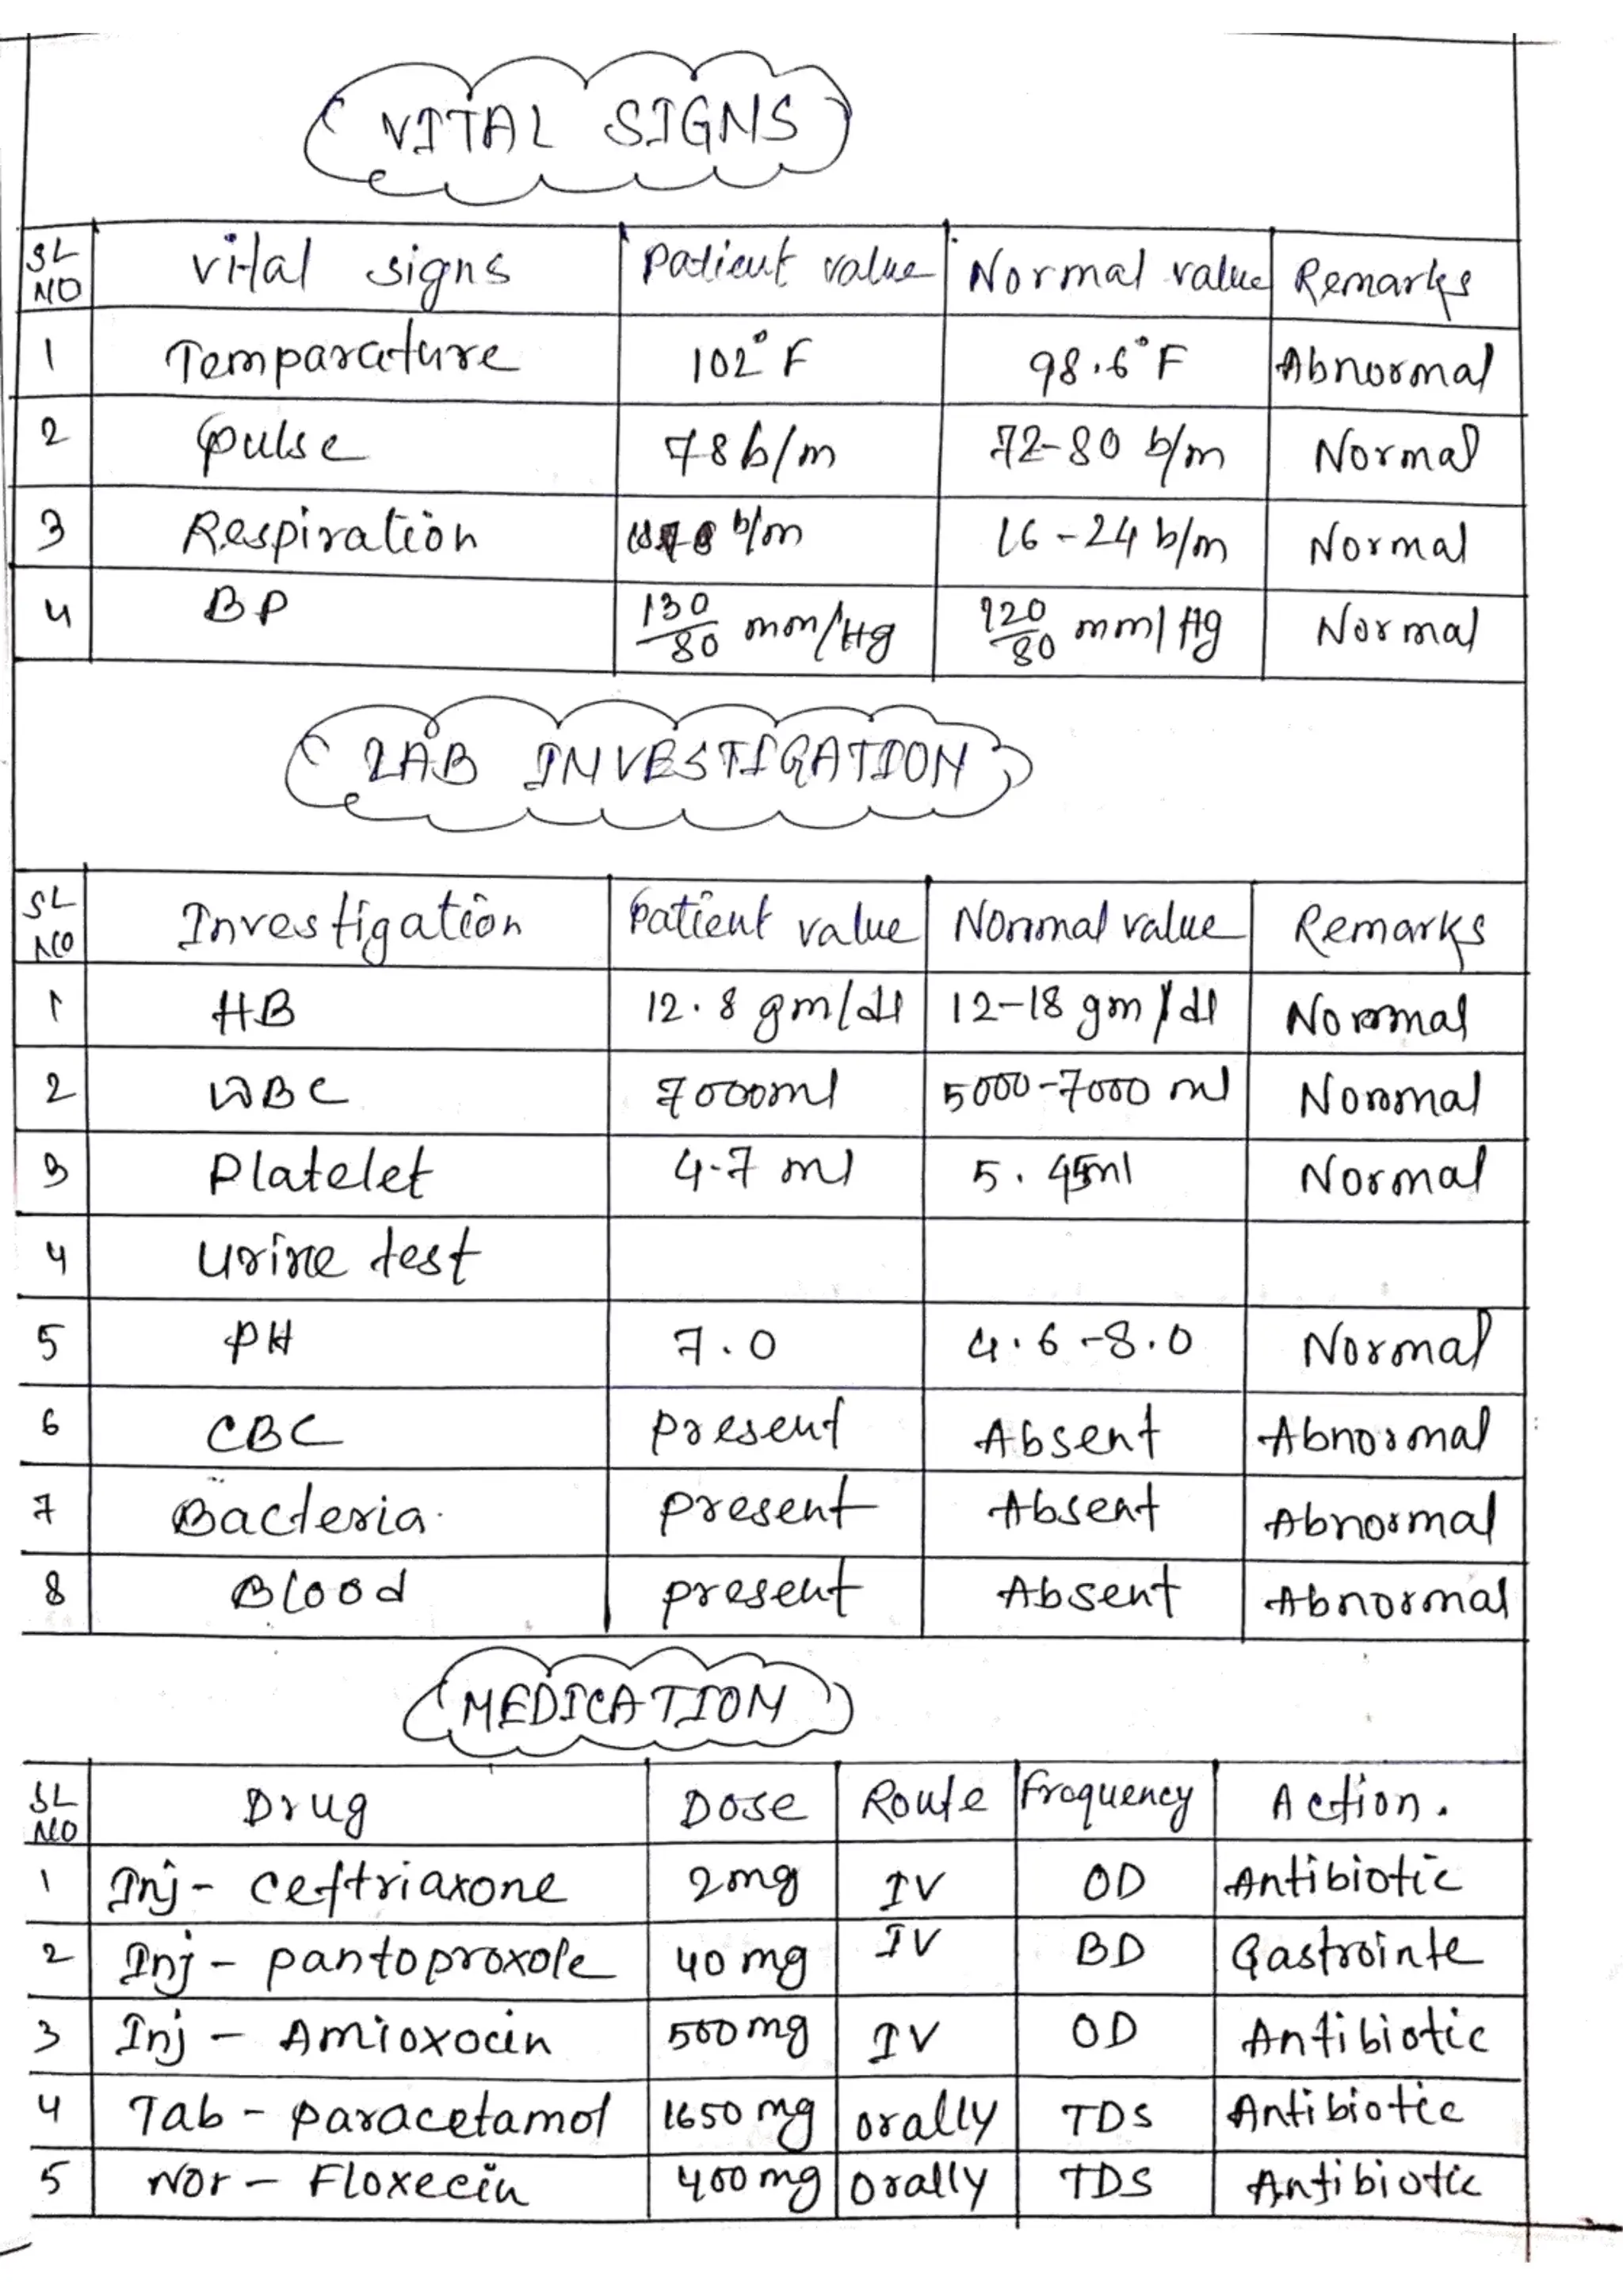 VITAL SIGNS
SL NO | Vital signs | Patient value | Normal value | Remarks
1 | Temparature | 102° F | 98.6° F | Abnormal
2 | pulse | 78 b/m | 72-80 b/m | Normal
3 | Respiration | b/m | 16-24 b/m | Normal
4 | BP | 130/80 mm/Hg | 120/80 mm/Hg | Normal
LAB INVESTIGATION
SL NO | Investigation | Patient value | Normal value | Remarks
1 | HB | 12.8 gm/dl | 12-18 gm/dl | Normal
2 | WBC | 7000ml | 5000-7000 ml | Normal
3 | Platelet | 4.7 ml | 5.45ml | Normal
4 | Urine test
5 | PH | 7.0 | 4.6-8.0 | Normal
6 | CBC | present | Absent | Abnormal
7 | Bacteria. | present | Absent | Abnormal
8 | Blood | present | Absent | Abnormal
MEDICATION
SL NO | Drug | Dose | Route | Frequency | Action.
1 | Inj- ceftriaxone | 2mg | IV | OD | Antibiotic
2 | Inj - pantoproxole | 40 mg | IV | BD | Gastrointe
3 | Inj - Amioxocin | 500 mg | IV | OD | Antibiotic
4 | Tab - paracetamol | 1650 mg | orally | TDS | Antibiotic
5 | Nor - Floxecin | 400 mg | orally | TDS | Antibiotic